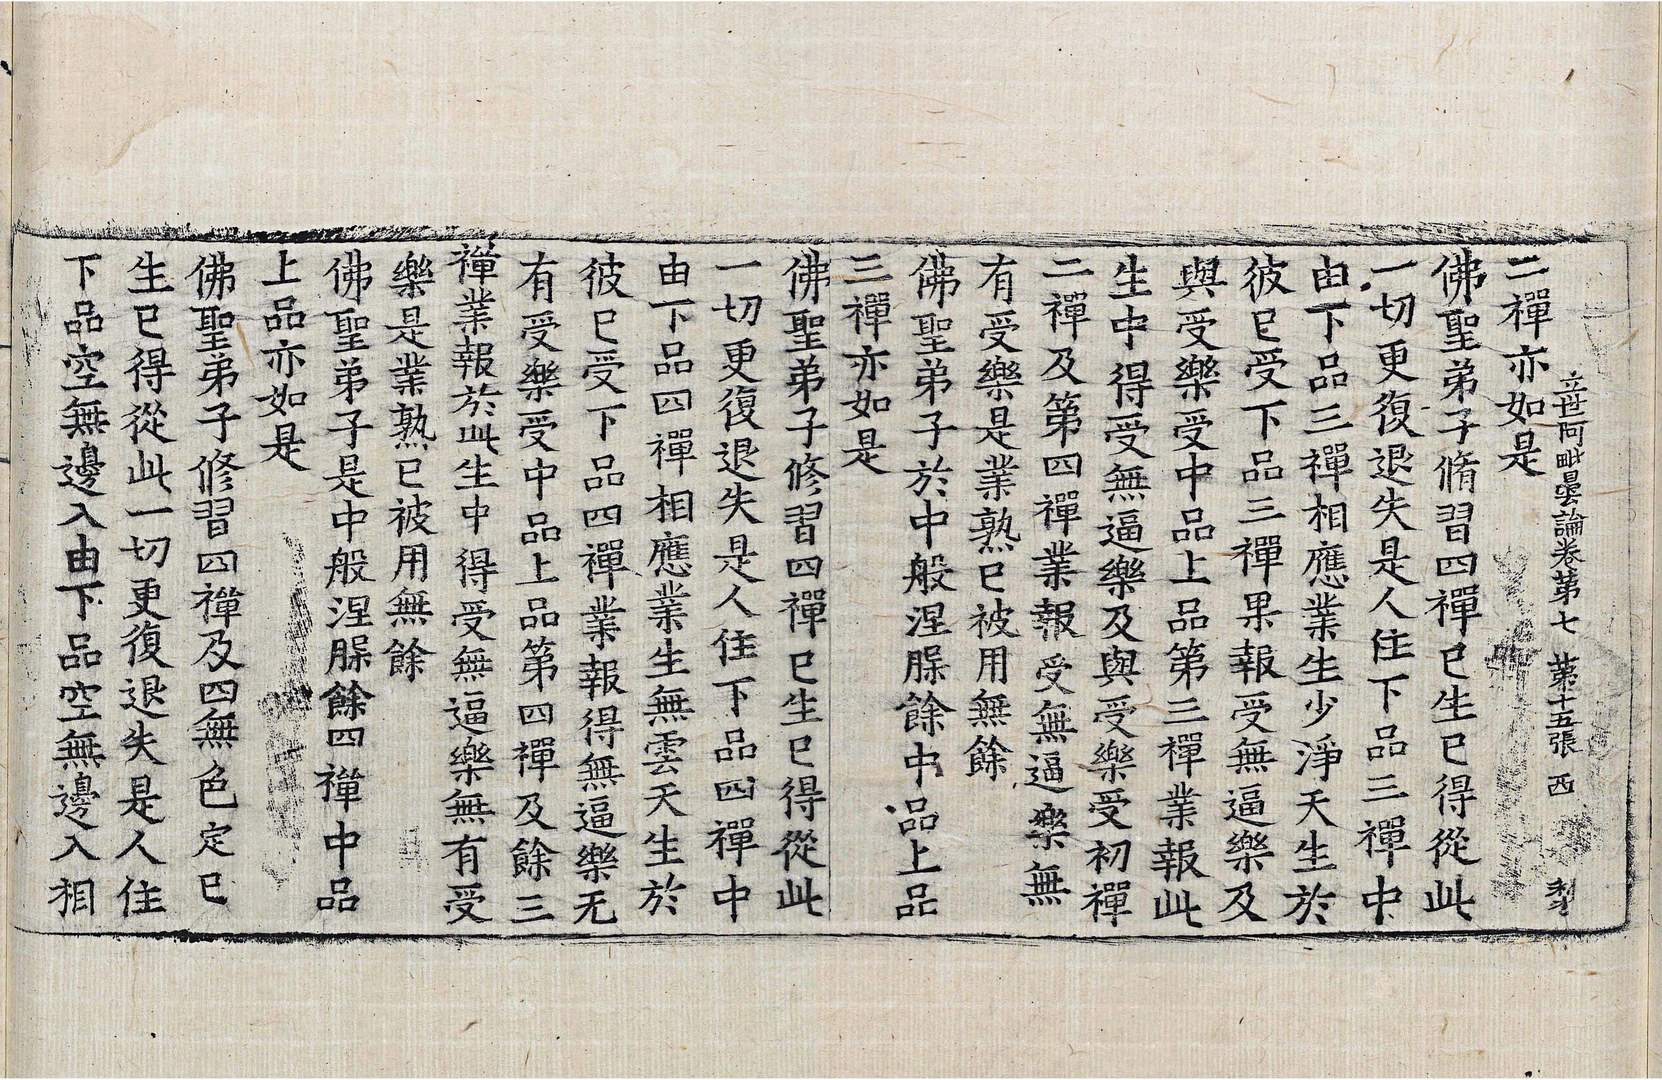 立世阿毗曇論卷第七 第十五張 西
二禪亦如是
佛聖弟子脩習四禪已生已得從此
一切更復退失是人住下品三禪中
由下品三禪相應業生少淨天生於
彼已受下品三禪果報受無逼樂及
與受樂受中品上品第三禪業報此
生中得受無逼樂及與受樂受初禪
二禪及第四禪業報受無逼樂無
有受樂是業熟已被用無餘
佛聖弟子於中般涅槃餘中品上品
三禪亦如是
佛聖弟子修習四禪已生已得從此
一切更復退失是人住下品四禪中
由下品四禪相應業生無雲天生於
彼已受下品四禪業報得無逼樂无
有受樂受中品上品第四禪及餘三
禪業報於此生中得受無逼樂無有受
樂是業熟已被用無餘
佛聖弟子是中般涅槃餘四禪中品
上品亦如是
佛聖弟子修習四禪及四無色定已
生已得從此一切更復退失是人住
下品空無邊入由下品空無邊入相